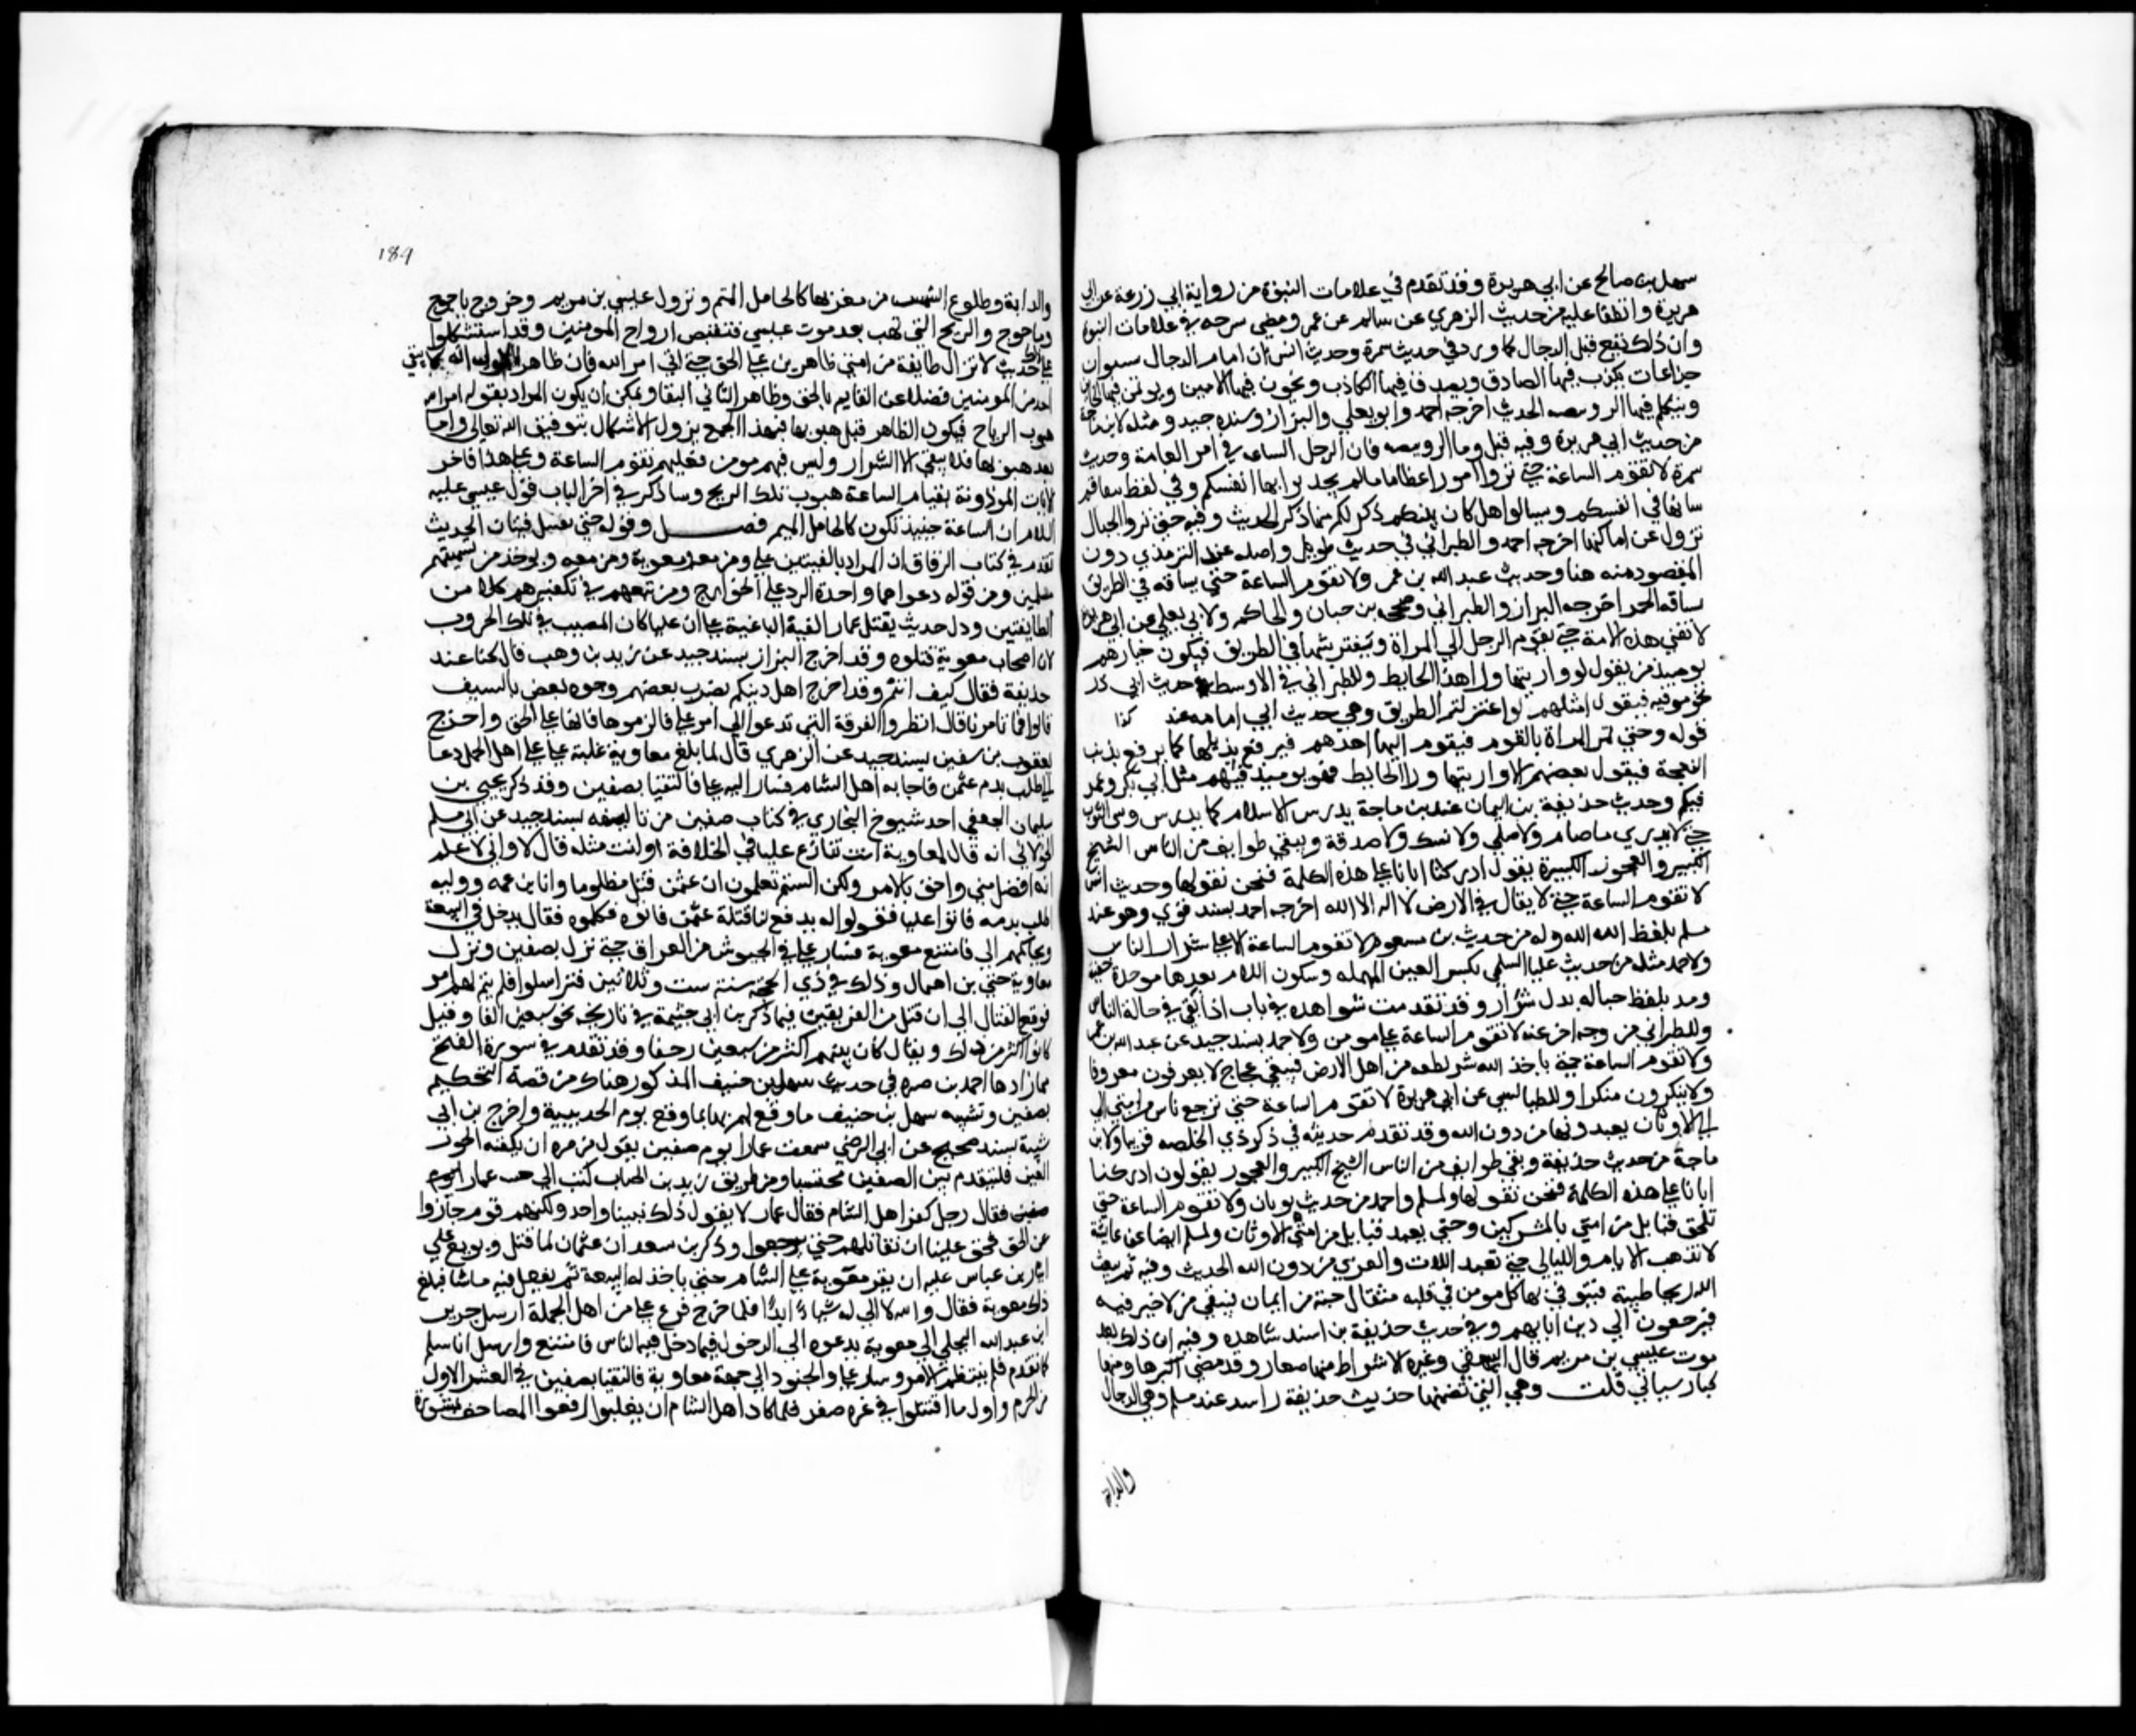 سهل بن صالح عن ابي هريرة وقد تقدم في علامات النبوة من رواية ابي زرعة عن ابي
هريرة واتفقا عليه من حديث الزهري عن سالم عن عمر ومضى سرحه في علامات النبوة
وان ذلك يقع قبل الدجال كما ورد في حديث سمرة وحديث انس ان امام الدجال سنوان
خداعات يكذب فيها الصادق ويصدق فيها الكاذب ويخون فيها الامين ويوتمن فيها الخاين
ويتكلم فيها الرويبضه الحديث اخرجه احمد وابو يعلي والبزار وسنده جيد ومثله لابن ماجة
من حديث ابي هريرة وفيه قيل وما الرويبضه قال الرجل السافه في امر العامة وحديث
سمرة لا تقوم الساعة حتي تروا امورا عظاما مالم يحدثوا بها انفسكم وفي لفظ يتفاقم
شانها في انفسكم وسيالوا هل كان نبيكم ذكر لكم منها ذكرا الحديث وفيه حتي تروا الجبال
تزول عن اماكنها اخرجه احمد والطبراني في حديث طويل واصله عند الترمذي دون
المقصود منه هنا وحديث عبد الله بن عمر ولا تقوم الساعة حتي يتسافد في الطريق
تسافد الحمر اخرجه البزار والطبراني وصححه بن حبان والحاكم ولابي يعلي عن ابي هريرة
لا تفني هذه الامة حتي يقوم الرجل الي المراة فيفترشها في الطريق فيكون خيارهم
يوميذ من يقول لو واريتها ورا هذا الحايط وللطبراني في الاوسط من حديث ابي ذر
نحوه وفيه فيقول امثلهم لو اعتزلتم الطريق وفي حديث ابي امامه عند كذا
قوله وحتي تمر المراة بالقوم فيقوم اليها احدهم فيرفع بذيلها كما يرفع بذنب
النعجة فيقول بعضهم الا واريتها ورا الحايط فهو يوميذ فيهم مثل ابي بكر وعمر
فيكم وحديث حذيفة بن اليمان عند بن ماجة يدرس الاسلام كما يدرس وشي الثوب
حتي لا يدري ما صيام ولا صلي ولا نسك ولا صدقة ويبقي طوايف من الناس الشيخ
الكبير والعجوز الكبيرة يقول ادركنا ابانا علي هذه الكلمة فنحن نقولها وحديث انس
لا تقوم الساعة حتي لا يقال في الارض لا اله الا الله اخرجه احمد بسند قوي وهو عند
مسلم بلفظ الله الله وله من حديث بن مسعود لا تقوم الساعة الا علي شرار الناس
ولاحمد مثله من حديث علبا السلمي بكسر العين المهمله وسكون اللام بعدها موحدة خفيفة
ومد بلفظ حثاله بدل شرار وقد تقدمت شواهده في باب اذا بقي في حالة الناس
وللطبراني من وجه اخر عنه لا تقوم الساعة علي مومن ولاحمد بسند جيد عن عبد الله بن عمر
ولا تقوم الساعة حتي ياخذ الله شريطته من اهل الارض فيبقي عجاج لا يعرفون معروفا
ولا ينكرون منكرا وللطيالسي عن ابي هريرة لا تقوم الساعة حتي ترجع ناس من امتي الي
الي الاوثان يعبدونها من دون الله وقد تقدم حديثه في ذكر ذي الخلصه قريبا ولابن
ماجة من حديث حذيفة وبقي طوايف من الناس الشيخ الكبير والعجوز يقولون ادركنا
ابانا علي هذه الكلمة فنحن نقولها ولمسلم واحمد من حديث ثوبان ولا تقوم الساعة حتي
تلحق قبايل من امتي بالمشركين وحتي يعبد قبايل من امتي الاوثان ولمسلم ايضا عن عايشة
لا تذهب الايام والليالي حتي تعبد اللات والعزي من دون الله الحديث وفيه ثم يبعث
الله ريحا طيبة فيتوفي بها كل مومن في قلبه مثقال حبة من ايمان فيبقي من لا خير فيه
فيرجعون الي دين ابايهم وفي حديث حذيفة بن اسيد شاهده وفيه ان ذلك بعد
موت عيسي بن مريم قال البيهقي وغيره الاشراط منها صغار وقد مضي اكثرها ومنها
كبار سياتي قلت وهي التي تضمنها حديث حذيفة بن اسيد عند مسلم وهي الدجال
والدابة
189
والدابة وطلوع الشمس من مغربها كالحامل المتم ونزول عيسي بن مريم وخروج ياجوج
وماجوج والريح التي تهب بعد موت عيسي فتقبض ارواح المومنين وقد استشكلوا
علي ذلك حديث لا تزال طايفة من امتي ظاهرين علي الحق حتي اتي امر الله فان ظاهر الاول انه لا يبقي
احد من المومنين فضلا عن القايم بالحق وظاهر الثاني البقا ويمكن ان يكون المراد بقوله امر الله
هبوب الرياح فيكون الظاهر قبل هبوبها فبهذا الجمع يزول الاشكال بتوفيق الله تعالي واما
بعد هبوبها فلا يبقي الا الشرار وليس فيهم مومن فعليهم تقوم الساعة وعلي هذا فاخر
الايات الموذونة بقيام الساعة هبوب تلك الريح وساذكر في اخر الباب قول عيسي عليه
السلام ان الساعة حينيذ تكون كالحامل الميم فصل وقوله حتي تقتل فيتان الحديث
تقدم في كتاب الرقاق ان المراد بالفيتين علي ومن معه ومعوية ومن معه ويوخذ من تسميتهم
مسلمين ومن قوله دعواهما واحدة الرد علي الخوارج ومن تبعهم في تكفيرهم كلا من
الطايفتين ودل حديث يقتل عمار الفية الباغية علي ان عليا كان المصيب في تلك الحروب
لان اصحاب معوية قتلوه وقد اخرج البزار بسند جيد عن زيد بن وهب قال كنا عند
حذيفة فقال كيف انتم وقد اخرج اهل دينكم يضرب بعضهم وجوه بعض بالسيف
قالوا فما تامرنا قال انظروا الفرقة التي تدعوا الي امر علي فالزموها فانها علي الحق واخرج
يعقوب بن سفين بسند جيد عن الزهري قال لما بلغ معاوية غلبة علي علي اهل الجمل دعا
الي الطلب بدم عثمن فاجابه اهل الشام فسار اليه علي فالتقيا بصفين وقد ذكر يحيي بن
سليمان الجعفي احد شيوخ البخاري في كتاب صفين من تاليفه بسند جيد عن ابي مسلم
الخولاني انه قال لمعاوية انت تنازع عليا في الخلافة او انت مثله قال لا واني لا علم
انه افضل مني واحق بالامر ولكن الستم تعلمون ان عثمن قتل مظلوما وانا بن عمه ووليه
اطلب بدمه فاتوا عليا فقولوا له يدفع لنا قتلة عثمن فاتوه فكلموه فقال يدخل في البيعة
ويحاكمهم الي فامتنع معوية فسار علي في الجيوش من العراق حتي نزل بصفين ونزل
معاوية حتي بن اهمال وذلك في ذي الحجة سنة ست وثلاثين فتراسلوا فلم يتم لهم امر
فوقع القتال الي ان قتل من الفريقين فيما ذكر بن ابي خيثمة في تاريخه نحو سبعين الفا وقيل
كانوا اكثر من ذلك ويقال كان بينهم اكثر من سبعين زحفا وقد تقدم في سورة الفتح
مما زادها احمد بن صره في حديث سهل بن حنيف المذكور هناك من قصة التحكيم
بصفين وتشبيه سهل بن حنيف ما وقع لهم بها بما وقع يوم الحديبية واخرج بن ابي
شيبة بسند صحيح عن ابي الرضي سمعت عمارا يوم صفين يقول من سره ان يكنفه الحور
العين فليتقدم بين الصفين محتسبا ومن طريق زيد بن الحباب كنت الي جنب عمار
صفين فقال رجل كفر اهل الشام فقال عمار لا يقول ذلك نبينا واحد ولكنهم قوم جازوا
عن الحق فحق علينا ان نقاتلهم حتي يرجعوا وذكر بن سعد ان عثمان لما قتل وبويع علي
اشار بن عباس عليه ان يقر معوية علي الشام حتي ياخذ له البيعة ثم يفعل فيه ما شا فبلغ
ذلك معوية فقال والله لا الي له شيا ابدا فلما خرج فرغ علي من اهل الجملة ارسل جرير
ابن عبد الله البجلي الي معوية يدعوه الي الدخول فيما دخل فيه الناس فامتنع وارسل ابا مسلم
كما تقدم فلم ينتظم الامر وسار علي والجنود الي جهة معاوية فالتقيا بصفين في العشر الاول
من المحرم واول ما اقتتلوا في غره صفر فلما كاد اهل الشام ان يغلبوا رفعوا المصاحف بمشورة